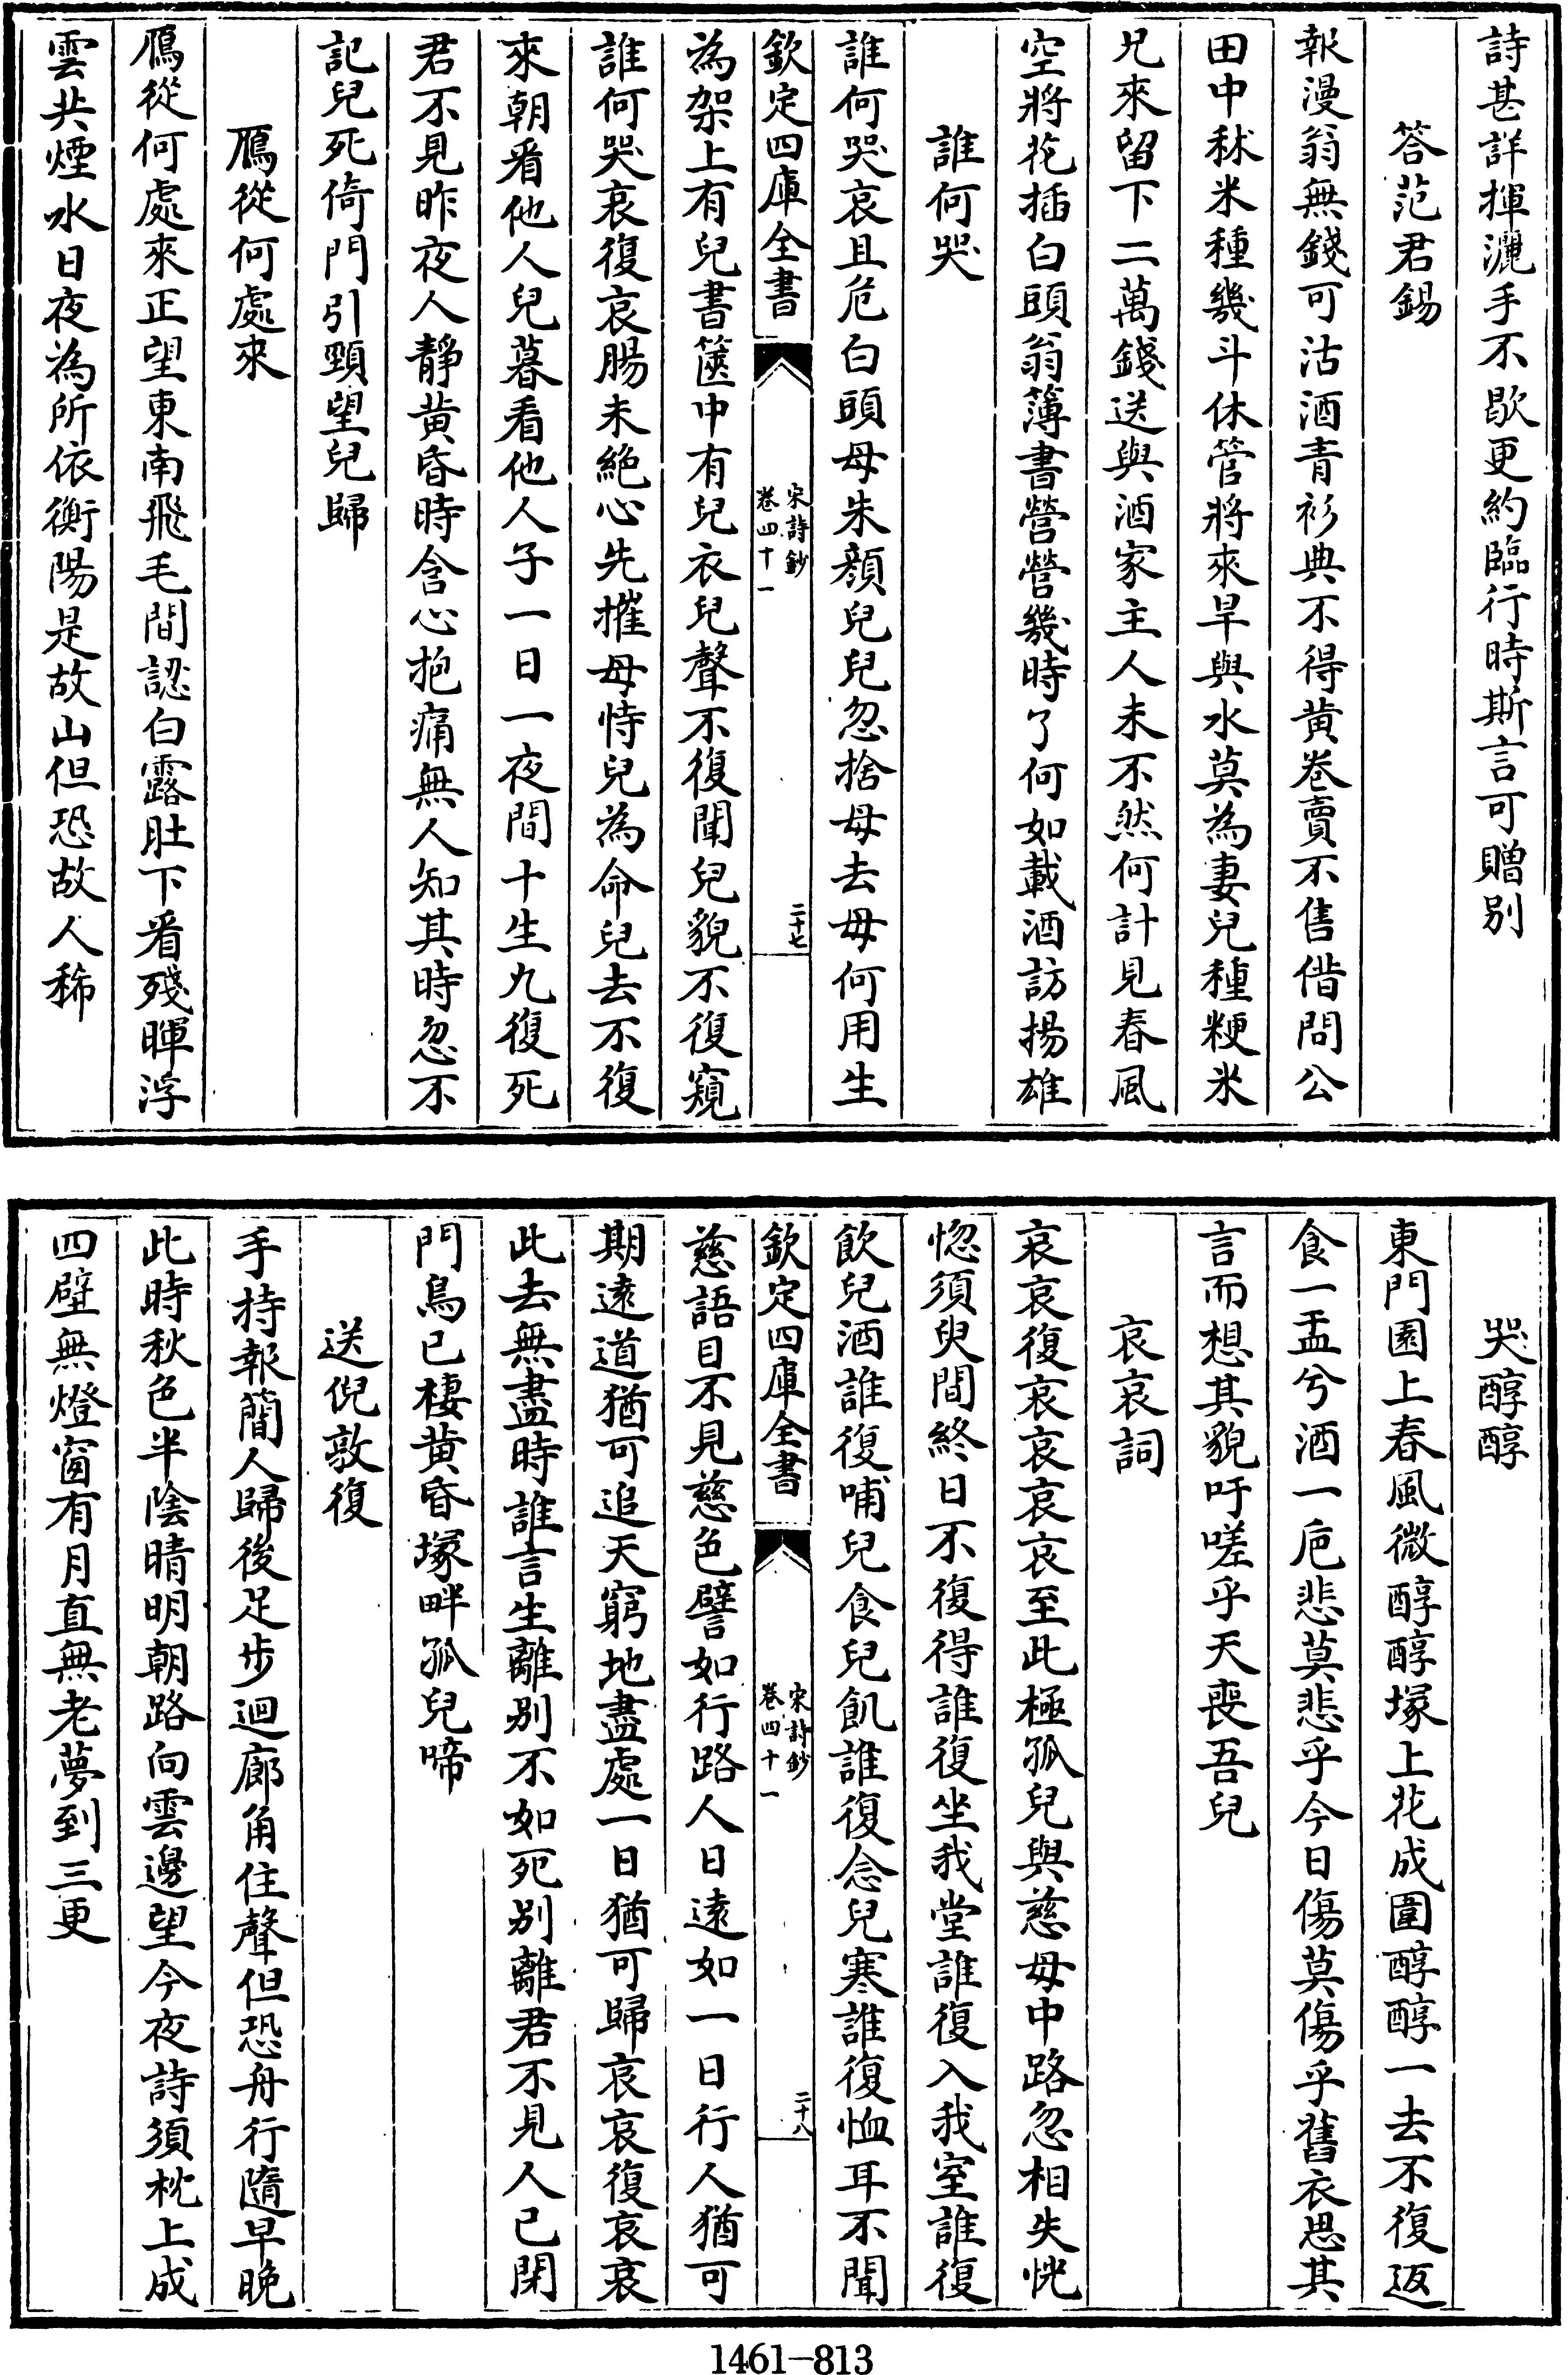 詩甚詳揮灑手不歇更約臨行時斯言可贈别
答范君錫
報漫翁無錢可沽酒青衫典不得黄卷賣不售借問公
田中秫米種幾斗休管將來旱與水莫為妻兒種粳米
兄來留下二萬錢送與酒家主人未不然何計見春風
空將花插白頭翁薄書營營幾時了何如載酒訪揚雄
誰何哭
誰何哭哀且危白頭母朱顔兒兒忽捨母去母何用生
欽定四庫全書
宋詩鈔
卷四十一
二十七
為架上有兒書篋中有兒衣兒聲不復聞兒貌不復窺
誰何哭哀復哀腸未絶心先摧母恃兒為命兒去不復
來朝看他人兒暮看他人子一日一夜間十生九復死
君不見昨夜人靜黄昏時含心抱痛無人知其時忽不
記兒死倚門引頸望兒歸
鴈從何處來
鴈從何處來正望東南飛毛間認白露肚下看殘暉浮
雲共煙水日夜為所依衡陽是故山但恐故人稀
哭醇醇
東門園上春風微醇醇塚上花成圍醇醇一去不復返
食一盂兮酒一巵悲莫悲乎今日傷莫傷乎舊衣思其
言而想其貌吁嗟乎天喪吾兒
哀哀詞
哀哀復哀哀哀哀哀至此極孤兒與慈母中路忽相失恍
惚須臾間終日不復得誰復坐我堂誰復入我室誰復
飲兒酒誰復哺兒食兒飢誰復念兒寒誰復恤耳不聞
欽定四庫全書
宋詩鈔
卷四十一
二十八
慈語目不見慈色譬如行路人日遠如一日行人猶可
期遠道猶可追天窮地盡處一日猶可歸哀哀復哀哀
此去無盡時誰言生離别不如死别離君不見人已閉
門鳥已棲黄昏塚畔孤兒啼
送倪敦復
手持報簡人歸後足步迴廊角住聲但恐舟行隨早晚
此時秋色半陰晴明朝路向雲邊望今夜詩須枕上成
四壁無燈窗有月直無老夢到三更
1461-813